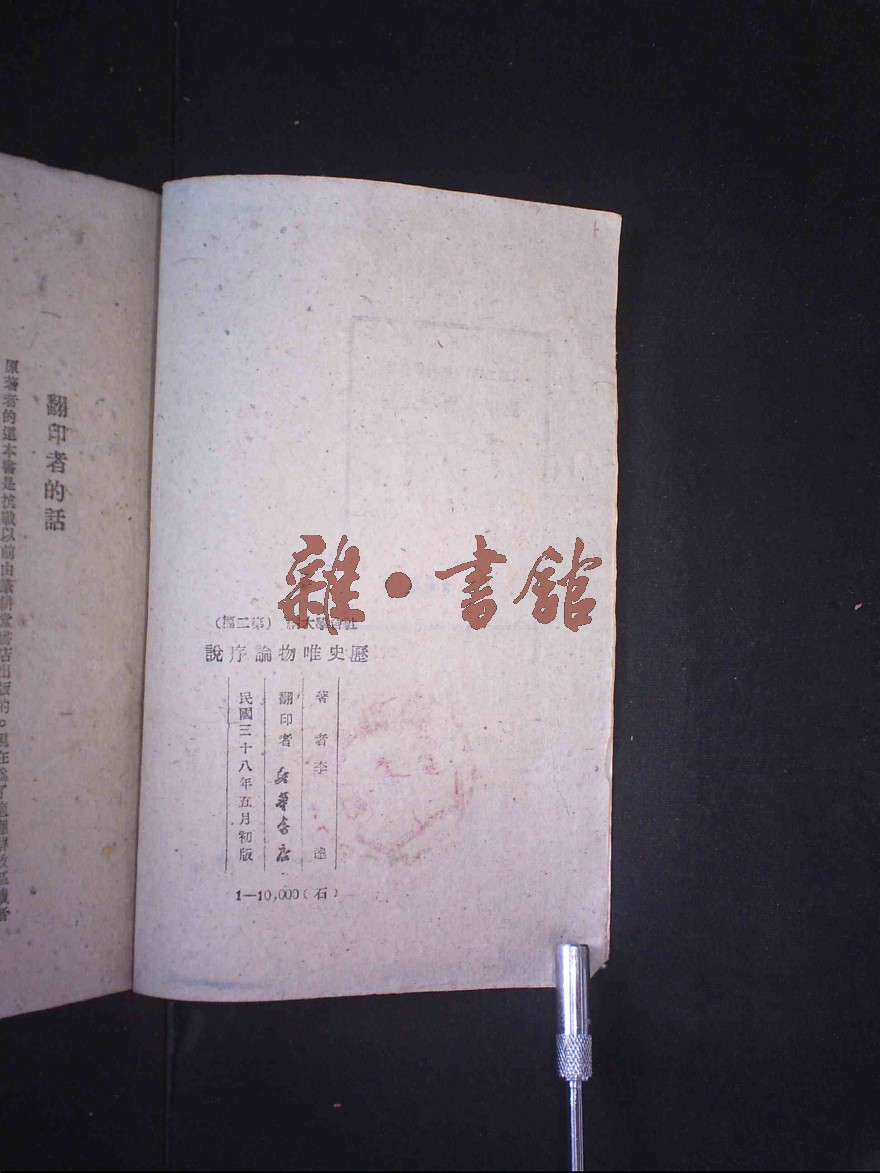 雜·書館
社會學大綱（第二篇）
歷史唯物論序說
著者李達
翻印者 新華書店
民國三十八年五月初版
1—10,000（石）
翻印者的話
原著者的這本書是抗戰以前由筆耕堂書店出版的。現在為了